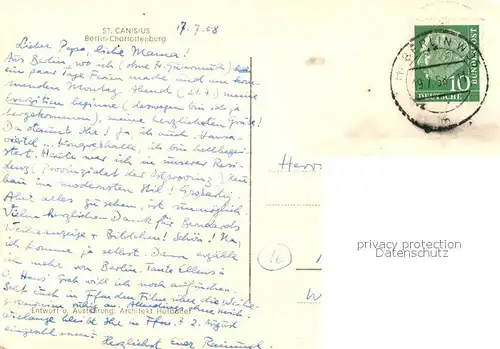 ST. CANISIUS
Berlin-Charlottenburg
17.7.58
Lieber Papa, liebe Mama!
Aus Berlin, wo ich (ohne
ein paar Tage Ferien mache und am kom-
menden Montag Abend (21.7.) meine
Exerzitien beginne (deswegen bin ich ja
hergekommen), meine herzlichsten Grüße!
Da staunt Ihr! Ja, ich auch. Hansa-
viertel... Kongreßhalle, ich bin hellbegei-
stert. Heute war ich in unserer Resi-
denz (Provinzialat der Ostprovinz) Neu-
bau im modernsten Stil! Großartig.
Aber alles zu sehen, ist unmöglich.
Vielen herzlichen Dank für
+ Bildchen! Schön! Na,
ich komme ja selbst. Dann erzähle
ich mehr von Berlin. Tante Ellens u.
O. Hans' Grab will ich noch aufsuchen.
Seht Euch in den Film über die Weihe
an.
Entwurf u. Ausführung: Architekt Hofbauer
wielange bleibt Ihr in 2. August
Herzlichst Euer Raimund.
BERLIN
58
10
DEUTSCHE
BUNDESPOST
Herrn
privacy protection
Datenschutz